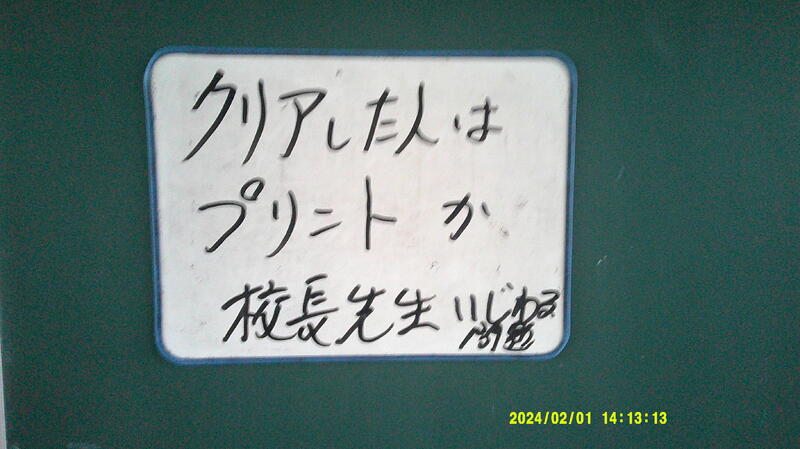 クリアした人は
プリントか
校長先生いじわる
問題
2024/02/01 14:13:13